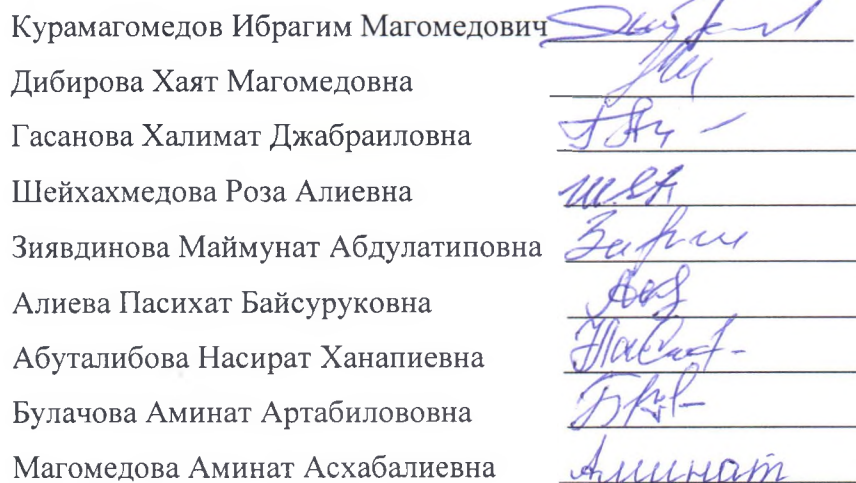 Курамагомедов Ибрагим Магомедович
Дибирова Хаят Магомедовна
Гасанова Халимат Джабраиловна
Шейхахмедова Роза Алиевна
Зиявдинова Маймунат Абдулатиповна
Алиева Пасихат Байсуруковна
Абуталибова Насират Ханапиевна
Булачова Аминат Артабилововна
Магомедова Аминат Асхабалиевна Аминат